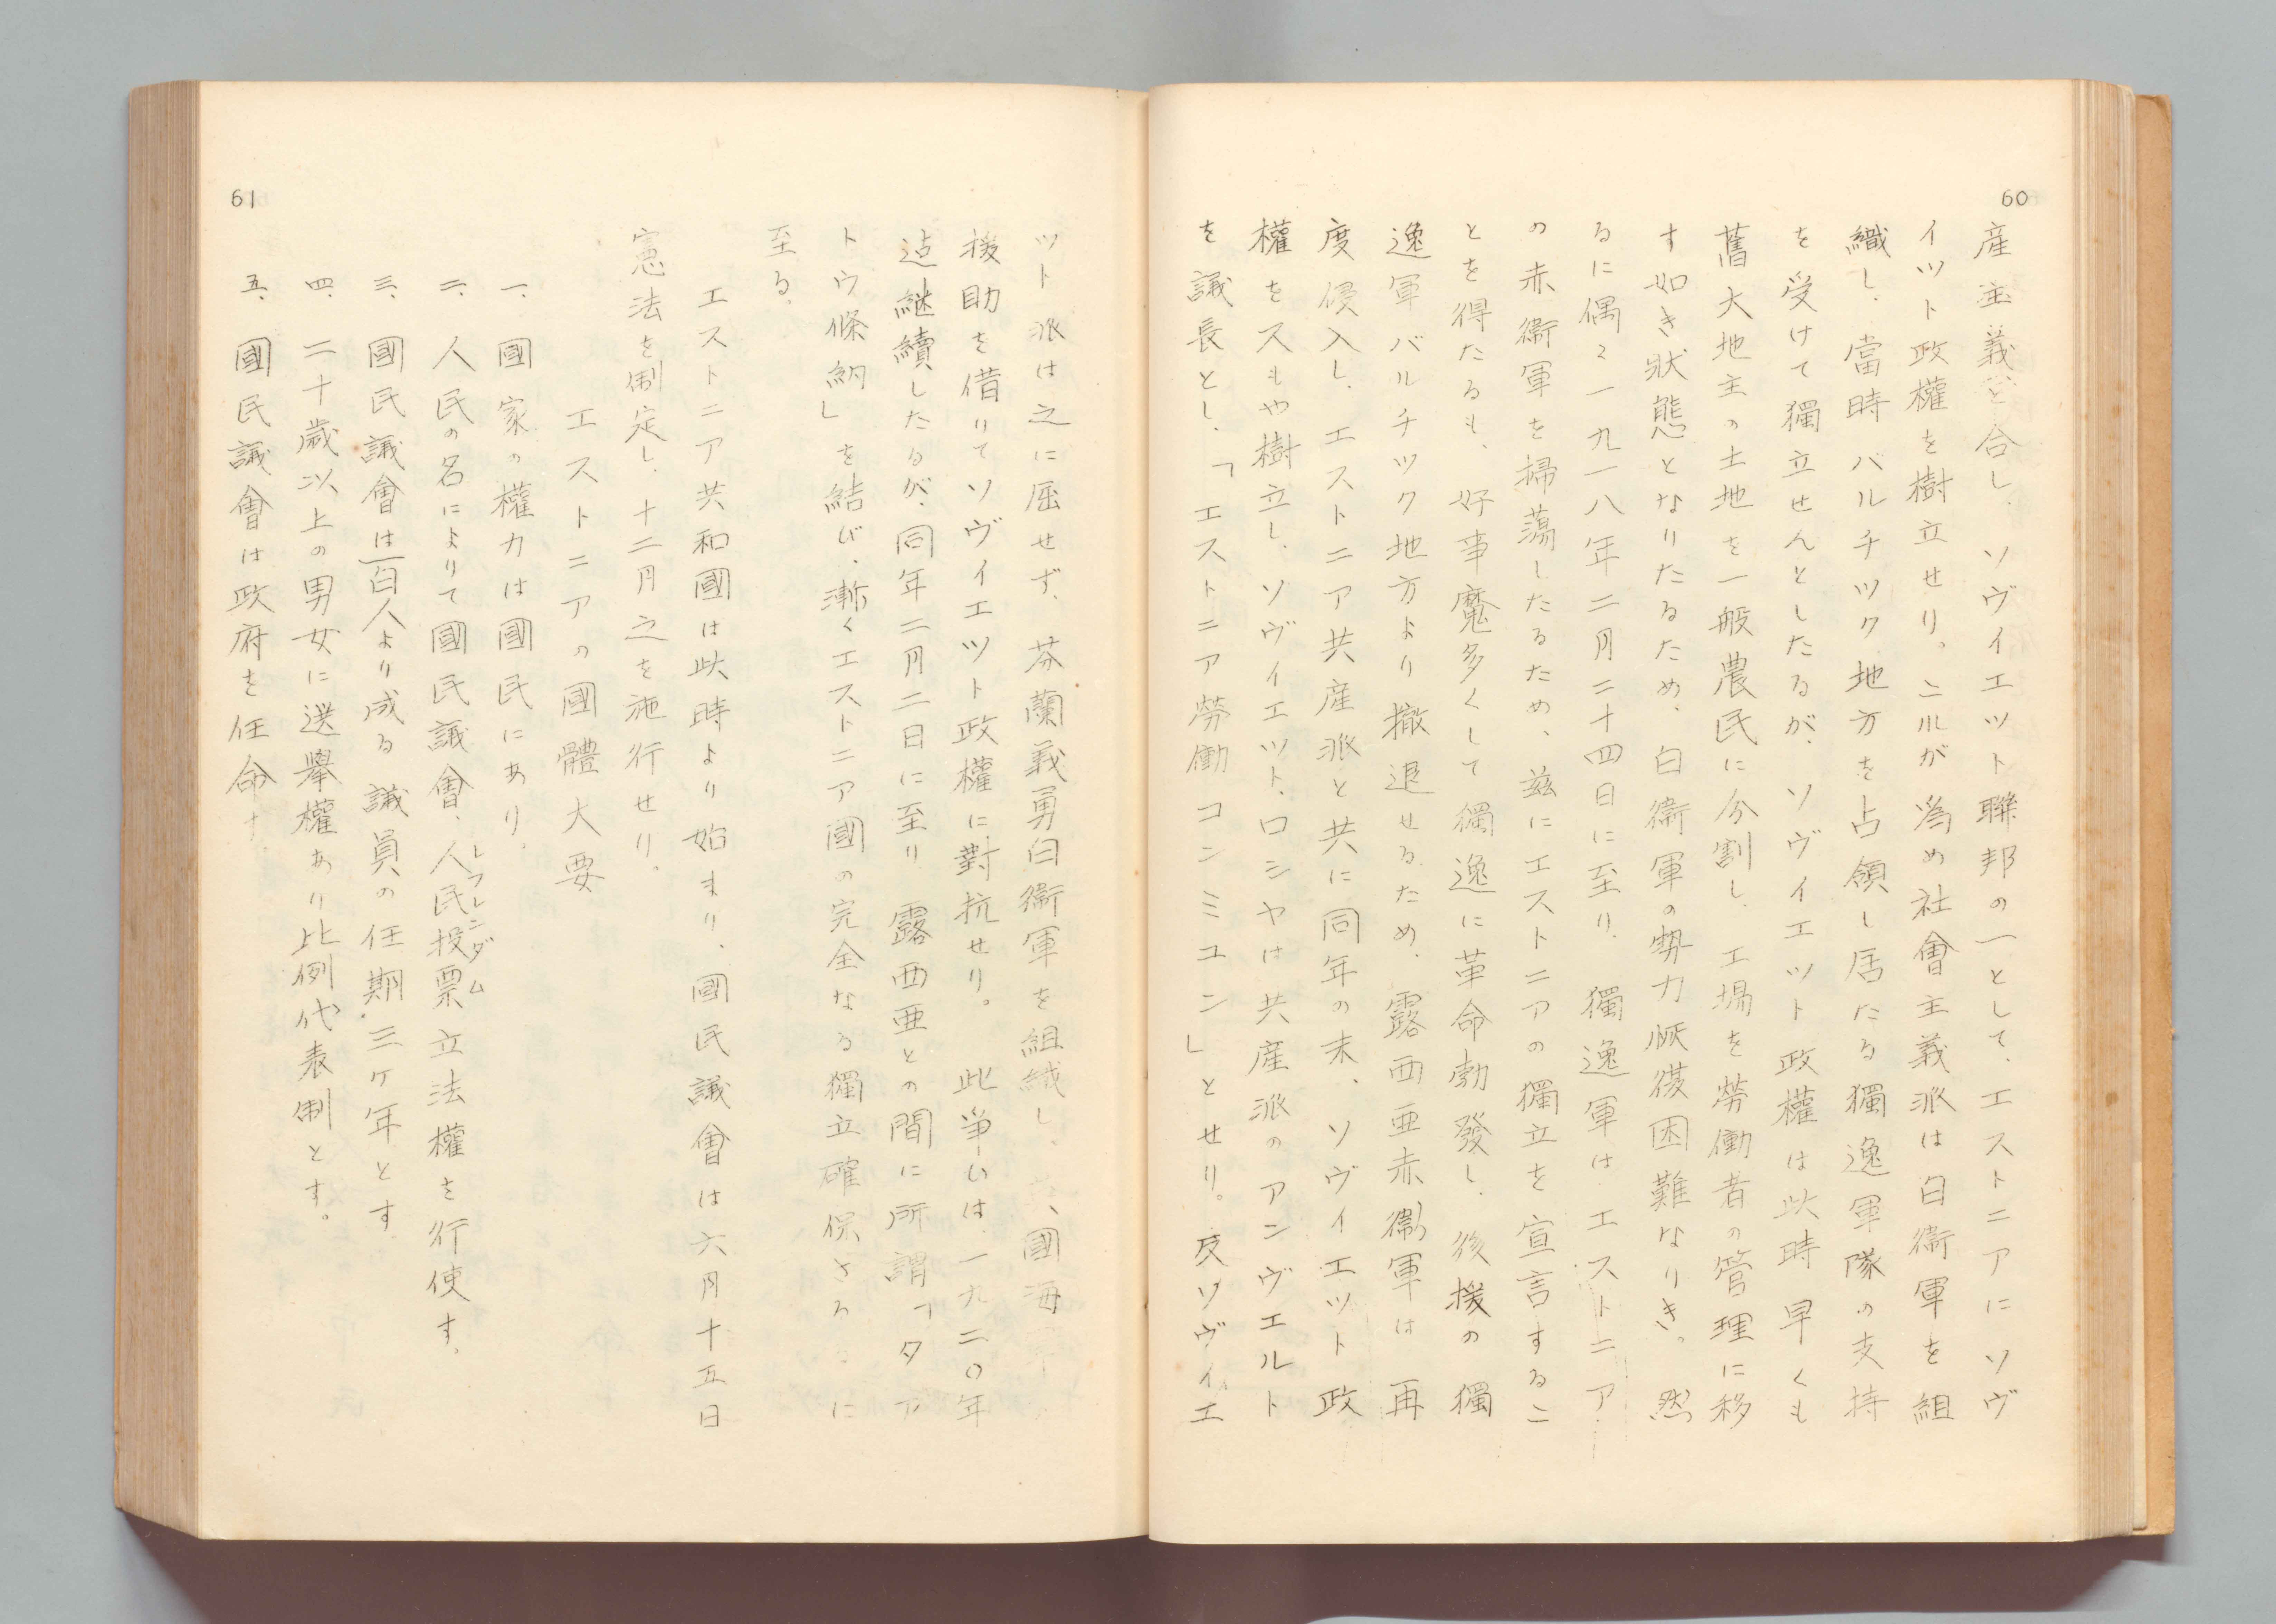 60
産主義を合し、ソヴイエツト聯邦の一として、エストニアにソヴ
イツト政權を樹立せり。こルが爲め社會主義派は白衞軍を組
織し、當時バルチツク地方を占領し居たる獨逸軍隊の支持
を受けて獨立せんとしたるが、ソヴイエツト政權は此時早くも
舊大地主の土地を一般農民に分割し、工場を勞働者の管理に移
す如き狀態となりたるため、白衞軍の勢力恢復困難なりき。然
るに偶々一九一八年二月二十四日に至り、獨逸軍はエストニア
の赤衞軍を掃蕩したるため、玆にエストニアの獨立を宣言するこ
とを得たるも、好事魔多くして獨逸に革命勃發し、後援の獨
逸軍バルチツク地方より撤退せるため、露西亜赤衞軍は再
度侵入し、エストニア共産派と共に同年の末、ソヴイエツト政
權をスもや樹立し、ソヴイエツト、ロシヤは共産派のアンヴエルト
を議長とし、「エストニア勞働コンミユン」とせり。反ソヴイエ
61
ツト派は之に屈せず、芬蘭義勇白衞軍を組織し、國海
援助を借りてソヴイエツト政權に對抗せり。此爭いは、一九二〇年
迠継續したるが、同年二月二日に至り露西亜との間に所謂「タア
トウ條約」を結び、漸くエストニア國の完全なる獨立確保さるゝに
至る。
エストニア共和國は此時より始まり、國民議會は六月十五日
憲法を制定し、十二月之を施行せり。
エストニアの國體大要
一、國家の權力は國民にあり。
二、人民の名によりて國民議會、人民投票立法權を行使す。
レフレンダム
三、國民議會は一百人より成る議員の任期三ケ年とす
四、二十歲以上の男女に選擧權あり比例代表制とす。
五、國民議會は政府を任命す。